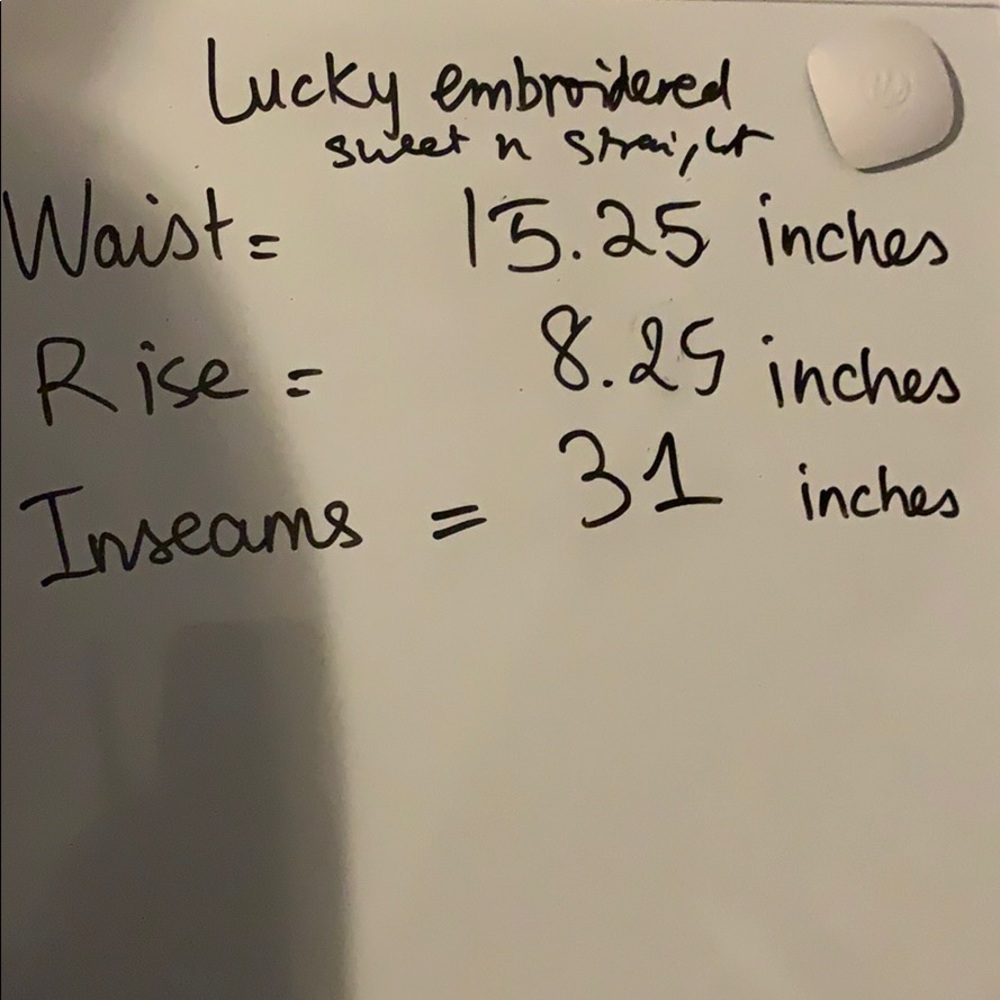 Lucky embroidered
sweet n straight
Waist = 15.25 inches
Rise = 8.25 inches
Inseams = 31 inches